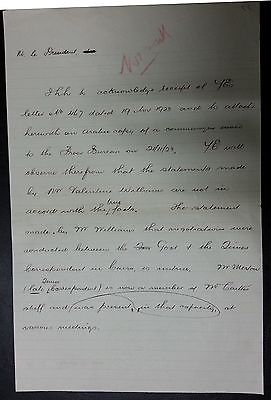 H. E. President
I h h to acknowledge receipt of Y/E
letter No 467 dated 19 Nov 1923 and to attach
herewith an Arabic copy of a communique issued
to the Press Bureau on 28/11/23. Y/E will
observe therefrom that the statements made
by Mr Valentine Williams are not in
true
accord with the facts. The statement
made by Mr Williams that negotiations were
conducted between the Govt & the Times
Correspondent in Cairo, is untrue. Mr Merton
Times
(late Correspondent) is now a member of Mr Carter
staff and was present, in that capacity, at
various meetings.